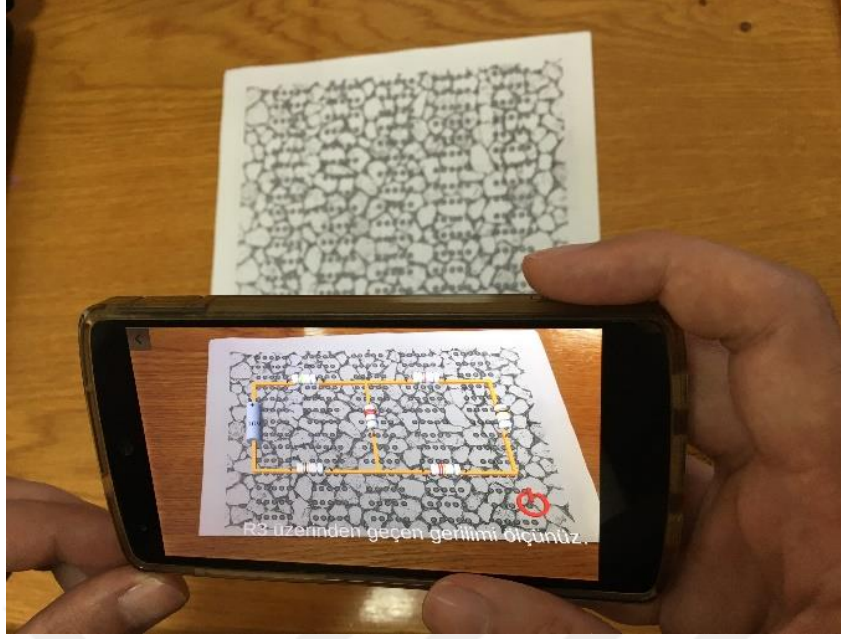 R3 üzerinden geçen gerilimi ölçünüz.